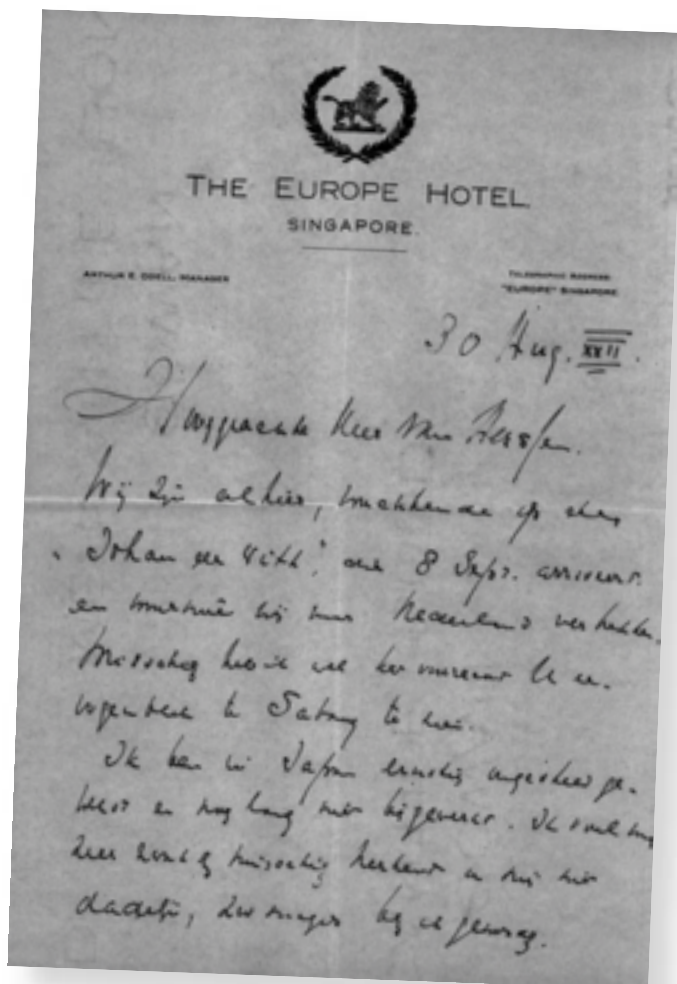 THE EUROPE HOTEL.
SINGAPORE.
ARTHUR E. ODELL, MANAGER
TELEGRAPHIC ADDRESS:
"EUROPE" SINGAPORE.
30 Aug. XXII.
Hooggeachte Heer van
Wij zijn alhier, wachtende op
"Johan de Witt", die 8 Sept. arriveert
en waarmee wij naar Nederland vertrekken.
Misschien heb ik wel het
te Sabang te
Ik ben in Japan ernstig ongesteld ge-
weest en nog lang niet bijgewerkt. Ik
zeer misschien en mij niet
dadelijk, zoo mager ben ik geworden.